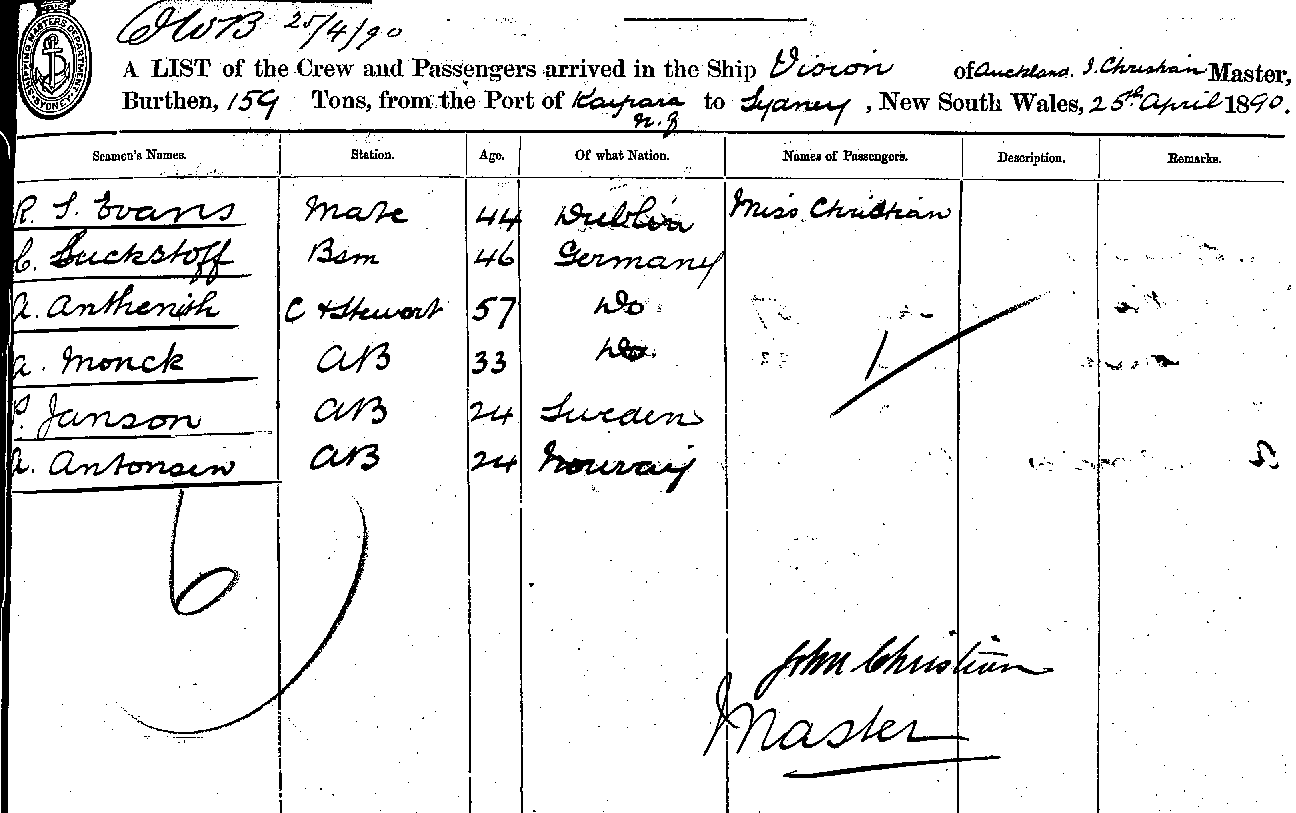 OWB 25/4/90
SHIPPING MASTERS DEPARTMENT SYDNEY
A LIST of the Crew and Passengers arrived in the Ship Vision of Auckland. J. Christian Master,
Burthen, 159 Tons, from the Port of Kaipara N.Z to Sydney, New South Wales, 25th April 1890.
Seamen's Names. Station. Age. Of what Nation. Names of Passengers. Description. Remarks.
R. S. Evans Mate 44 Dublin Miss Christian
C. Luckstoff Bsm 46 Germany
A. Anthenish C & Stewart 57 Do
A. Monck AB 33 Do 1
P. Janson AB 24 Sweden
A. Antonsen AB 24 Norway
6
John Christian
Master